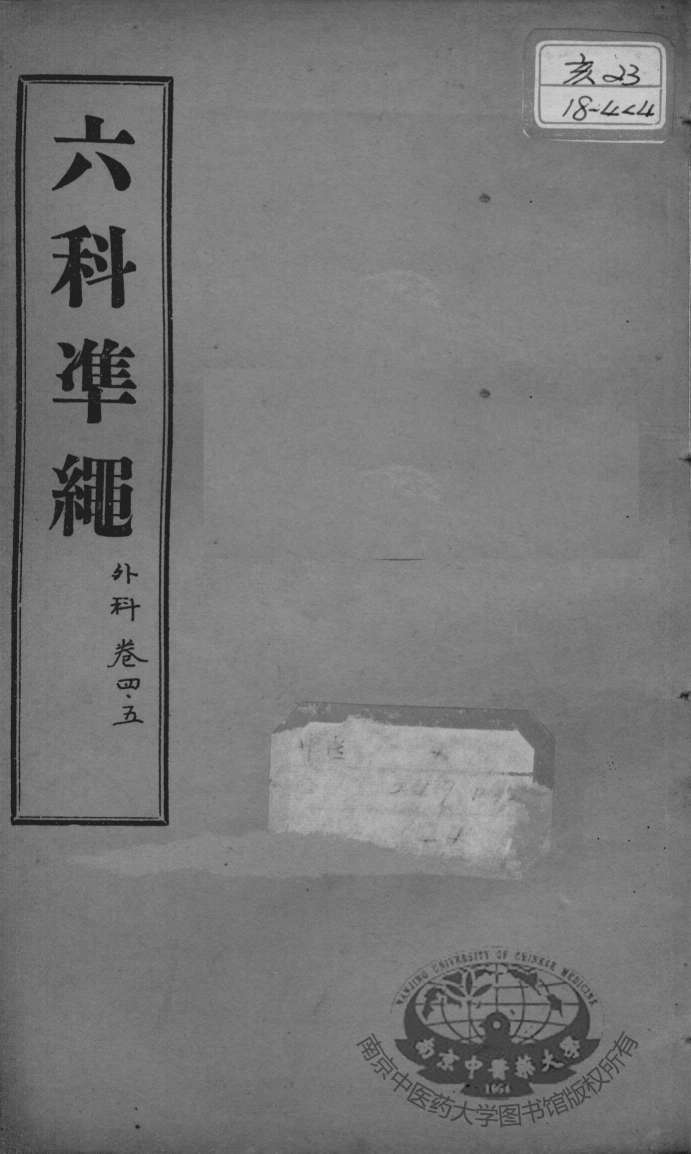 亥23
18-4<4
六科準繩
外科卷四·五
NANJING UNIVERSITY OF CHINESE MEDICINE
南京中醫藥大學
1954
南京中医药大学图书馆版权所有